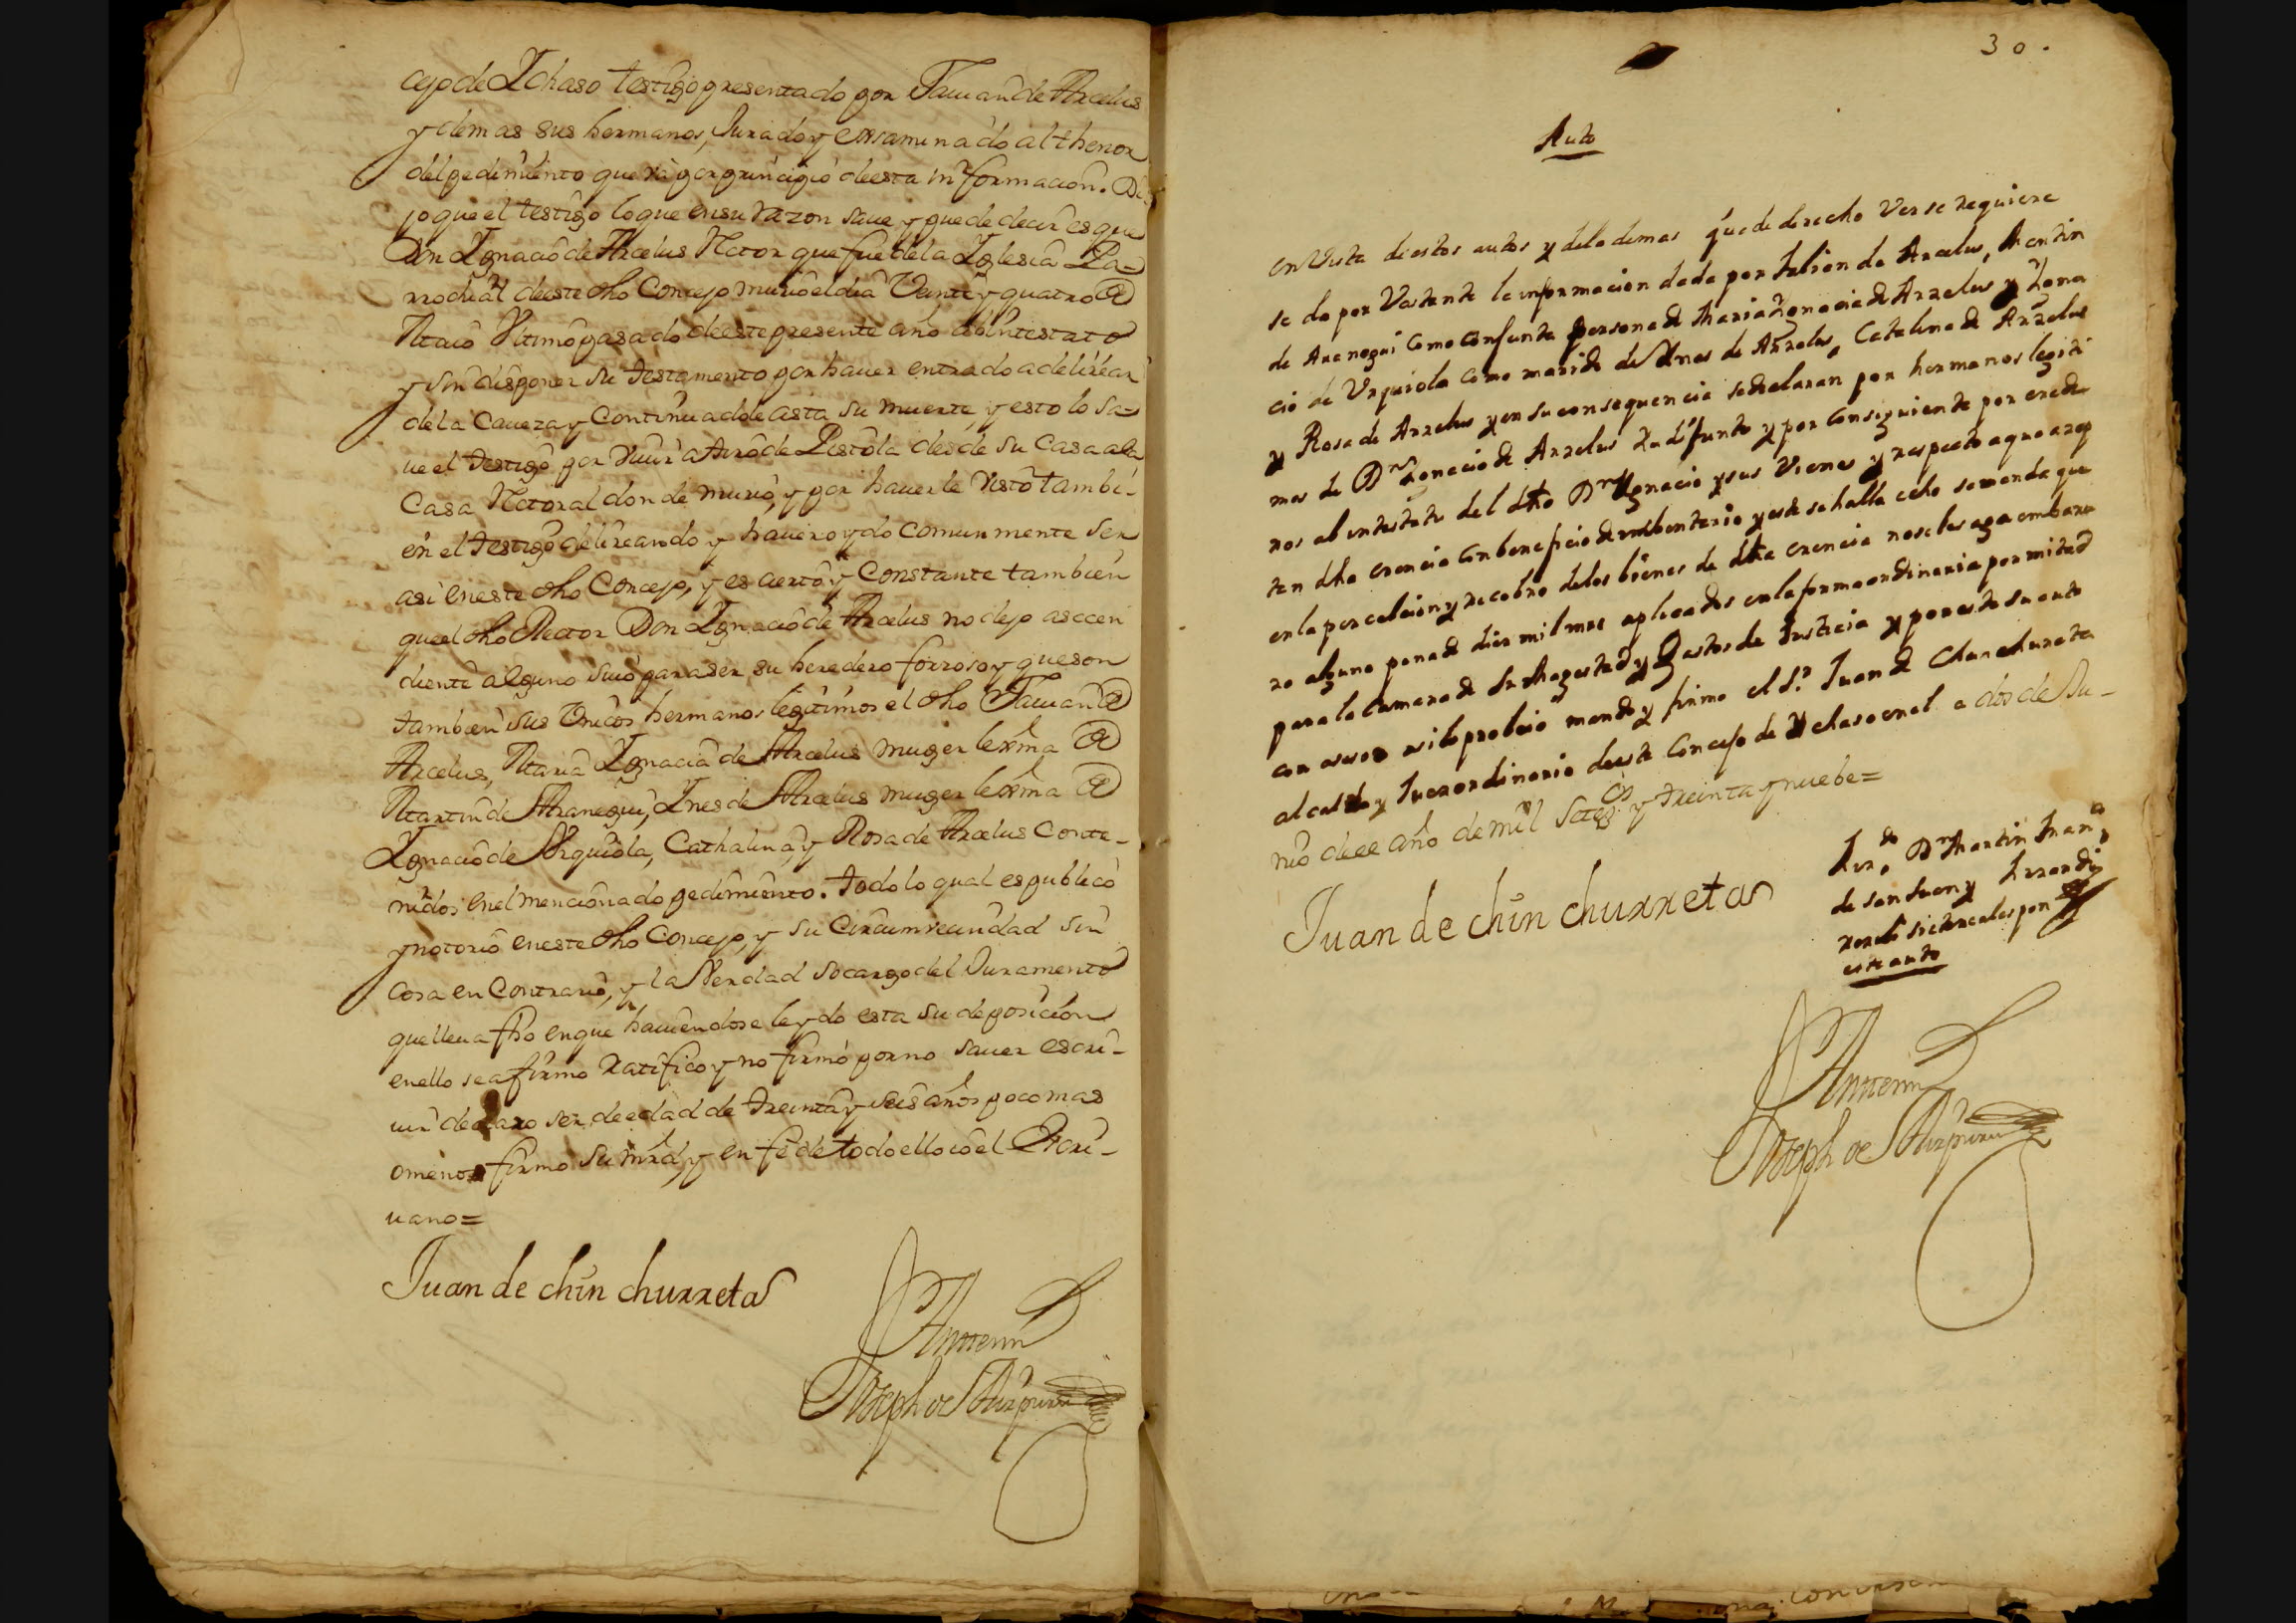 cejo de Ichaso testigo presentado por Jauian de Arcelus
y demas sus hermanos, Jurado y exsaminado al thenor
del pedimiento que va por principio deesta informacion. Di-
jo que el testigo lo que en su razon saue y puede decir es que
Don Ignacio de Arcelus Retor que fue de la Iglesia Pa=
rrochial deeste dho Concejo murio el dia Veinte y quatro de
Maio Vltimo pasado deeste presente año abintestato
y sin disponer su testamento por hauer entrado a delirear
de la Caueza y Continuadole asta su muerte, y esto lo sa=
ue el testigo por viuir a tiro de Pistola desde su Casa a la
Casa Retoral donde murio, y por hauerle visto tambi-
en el testigo delireando y hauer oydo comunmente ser
asi en este dho Concejo, y es cierto y Constante tambien
que el dho Rector Don Ignacio de Arcelus no dejo ascen
diente alguno suio para ser su heredero forzoso y que son
tambien sus Vnicos hermanos legitimos el dho Jauian de
Arcelus, Maria Ignacia de Arcelus muger lexma de
Martin de Aranegui, Ines de Arcelus muger lexma de
Ignacio de Vrquiola, Cathalina, y Rosa de Arcelus Conte-
nidos en el mencionado pedimiento. todo lo qual es publico
y notorio en este dho Concejo, y su Circumvecindad sin
cosa en Contrario, y la Verdad socargo del Juramento
que lleua fho en que hauiendose leydo esta su deposicion
en ello se afirmo ratifico y no firmó por no sauer escri-
uir declaro ser de edad de treinta y seis años poco mas
o menos firmo su mrd, y en fe de todo ello io el Escri-
uano=
Juan de chin churreta
Antemi
Joseph de
30.
Auto
en Vista de estos autos y de lo demas que de derecho Verse requiere
se da por Vastante la informacion dada por Julian de Arcelus, Martin
de Aranegui como conjunta persona de Maria Ygnacia de Arzelus y Ygna
cio de Vrquiola como marido de Ynes de Arzelus, Catalina de Arzelus
y Rosa de Arzelus y en su consequencia se declaran por hermanos legiti
mos de Dn Ygnacio de Arzelus ya difunto y por consiguiente por erede
ros abintestato del dho Dn Ygnacio y sus Vienes y respecto a que azep
tan dha erencia con beneficio de imbentario y este se halla echo se manda que
en la percepcion y recobro de los bienes de dha erencia no se les aga embara
zo alguno pena de diez mil mrs aplicados en la forma ordinaria por mitad
para la camara de su Magestad y Gastos de Justicia y por este su auto
con asesor asi lo probeio mando y firmo el Sr. Juan de Chinchurreta
alcalde y Juez ordinario deeste Concejo de Ychaso en el a dos de Ju-
nio dee año de mil Setezos y treinta y nuebe=
Juan de chin churreta
Lizdo Dn Martin Juan
de san Juan y
siete reales por
este auto
Antemi
Joseph de